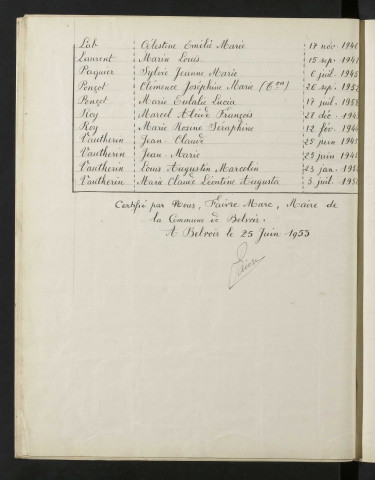 Lab Célestine Emélie Marie 17 nov. 194
Laurent Marie Louis 15 sep. 194
Paquier Sylvie Jeanne Marie 6 juil. 1945
Ponçot Clémence Joséphine Marie 26 sep. 195
Ponçot Marie Eulalie Lucia 17 juil. 195
Roy Marcel François 28 déc. 194
Roy Marie Rosine Séraphine 12 fév. 194
Vautherin Jean Claude 25 juin 194
Vautherin Jean Marie 23 juin 194
Vautherin Louis Augustin Marcelin 23 jan. 195
Vautherin Marie Claude Léontine Augusta 3 juil. 195
Certifié par Nous, Faivre Marc, Maire de
la Commune de Belvoir.
A Belvoir le 25 Juin 1953
Faivre